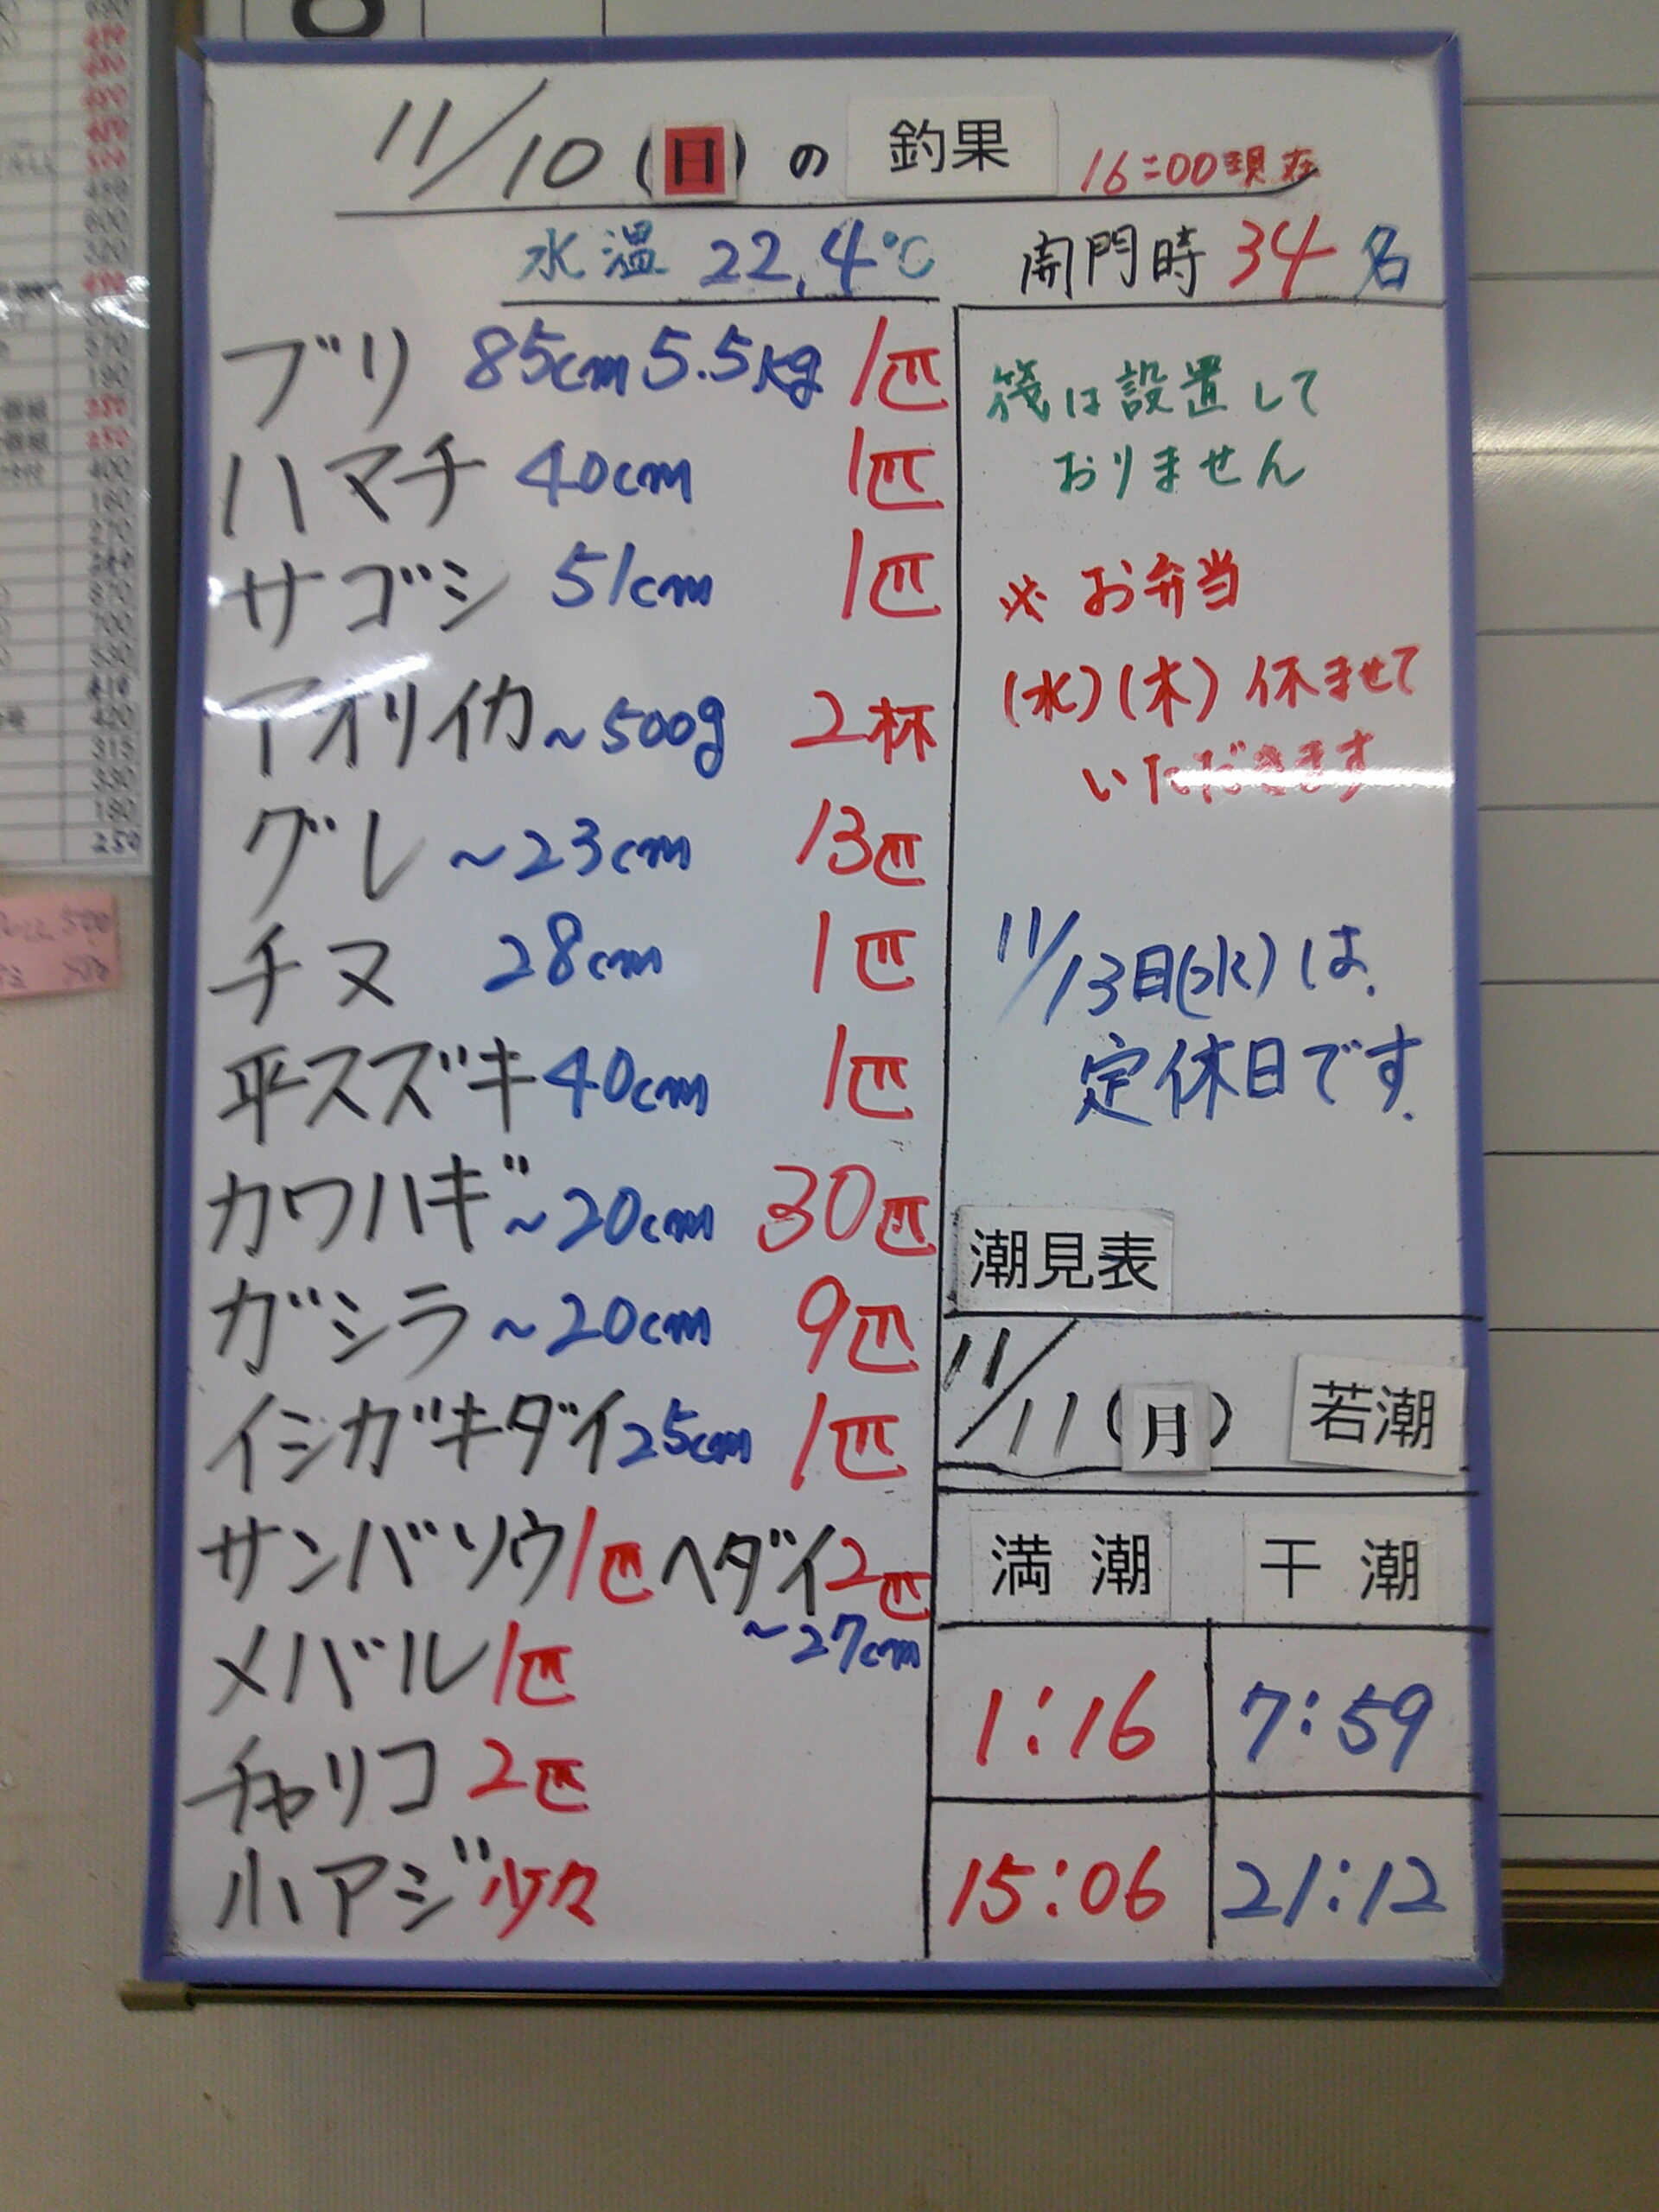 11/10(日)の 釣果 16:00現在
水温 22.4℃ 開門時 34名
ブリ 85cm 5.5kg 1匹
ハマチ 40cm 1匹
サゴシ 51cm 1匹
アオリイカ ~500g 2杯
グレ ~23cm 13匹
チヌ 28cm 1匹
平スズキ 40cm 1匹
カワハギ ~20cm 30匹
ガシラ ~20cm 9匹
イシガキダイ 25cm 1匹
サンバソウ 1匹 ヘダイ 2匹
~27cm
メバル 1匹
チャリコ 2匹
小アジ 少々
筏は設置して
おりません
※ お弁当
(水)(木) 休ませて
いただきます
11/13日(水)は、
定休日です.
潮見表
11/11(月) 若潮
満潮 干潮
1:16 7:59
15:06 21:12